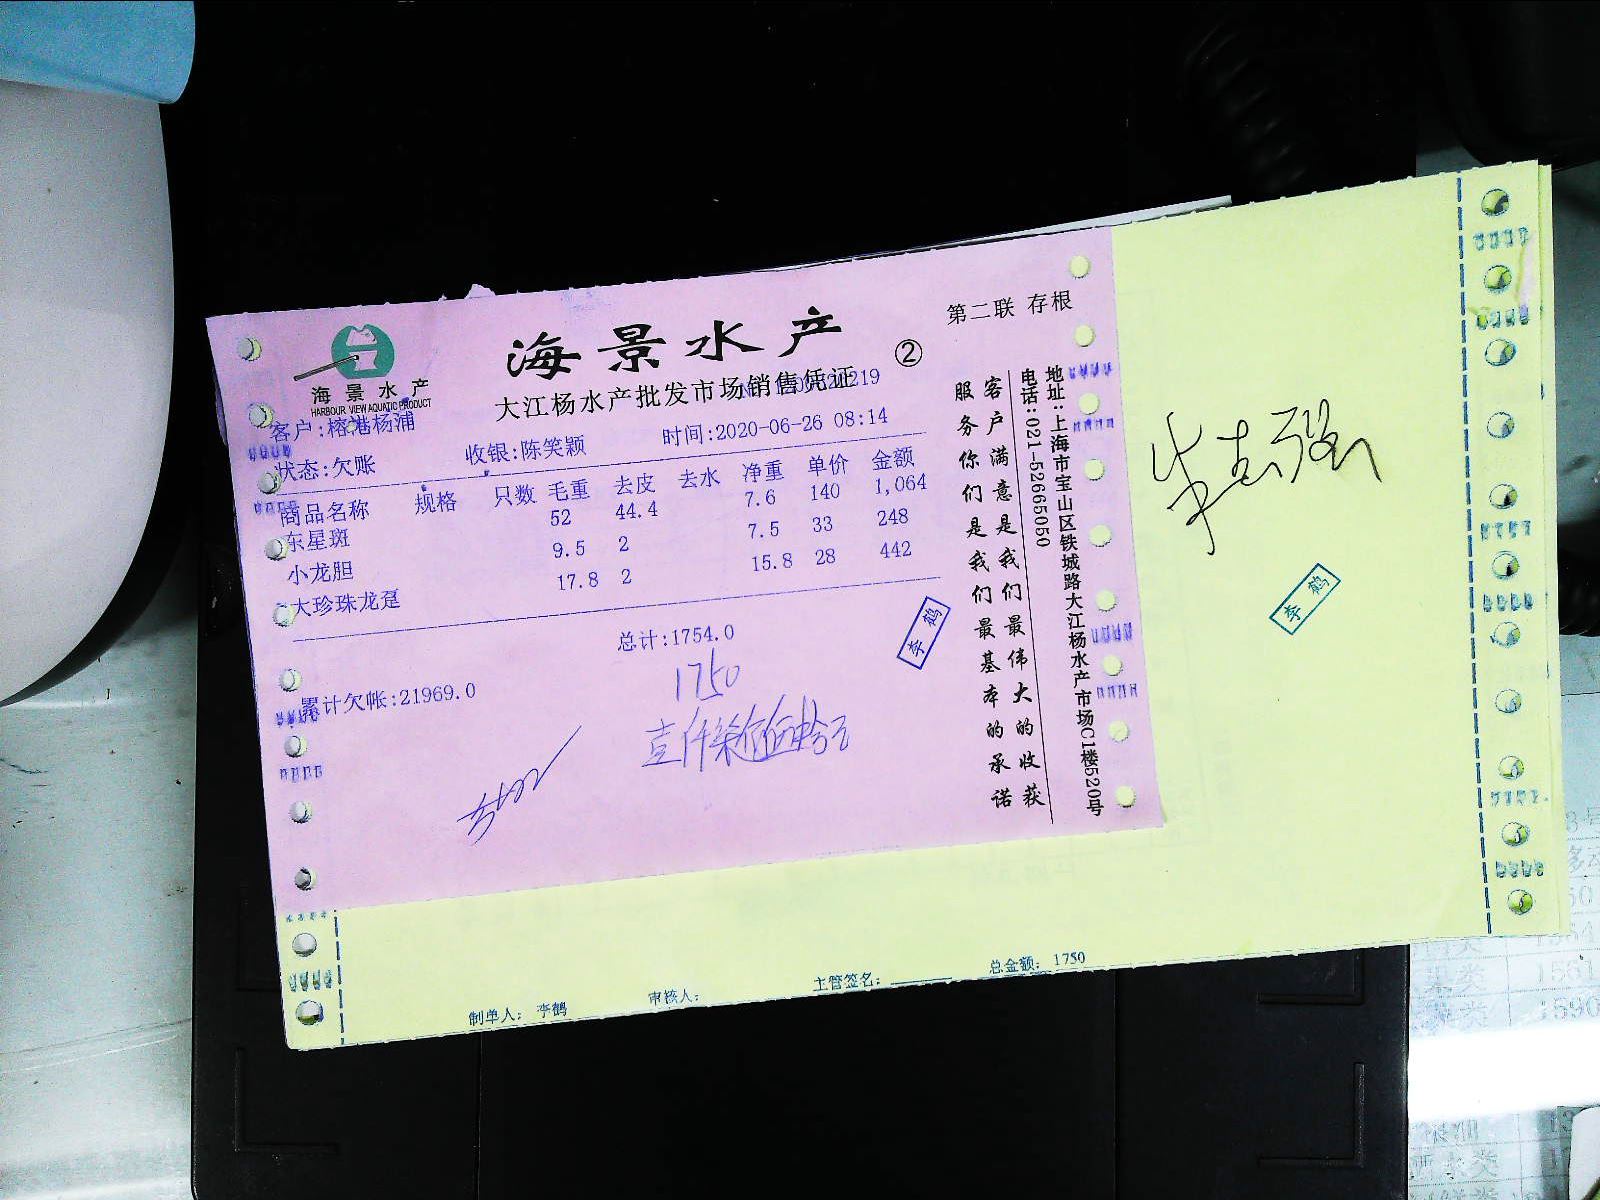 第二联 存根
海景水产
②
海景水产
HARBOUR VIEW AQUATIC PRODUCT
大江杨水产批发市场销售凭证
客户:榕港杨浦
收银:陈笑颖
时间:2020-06-26 08:14
状态:欠账
商品名称 规格 只数 毛重 去皮 去水 净重 单价 金额
东星斑 52 44.4 7.6 140 1,064
小龙胆 9.5 2 7.5 33 248
大珍珠龙趸 17.8 2 15.8 28 442
总计:1754.0
1750
累计欠帐:21969.0
壹仟柒佰伍拾元
李鹤
客户满意是我们最伟大的收获
服务你们是我们最基本的承诺
地址:上海市宝山区铁城路大江杨水产市场C1楼520号
电话:021-52665050
李鹤
制单人: 李鹤
审核人:
主管签名:
总金额: 1750